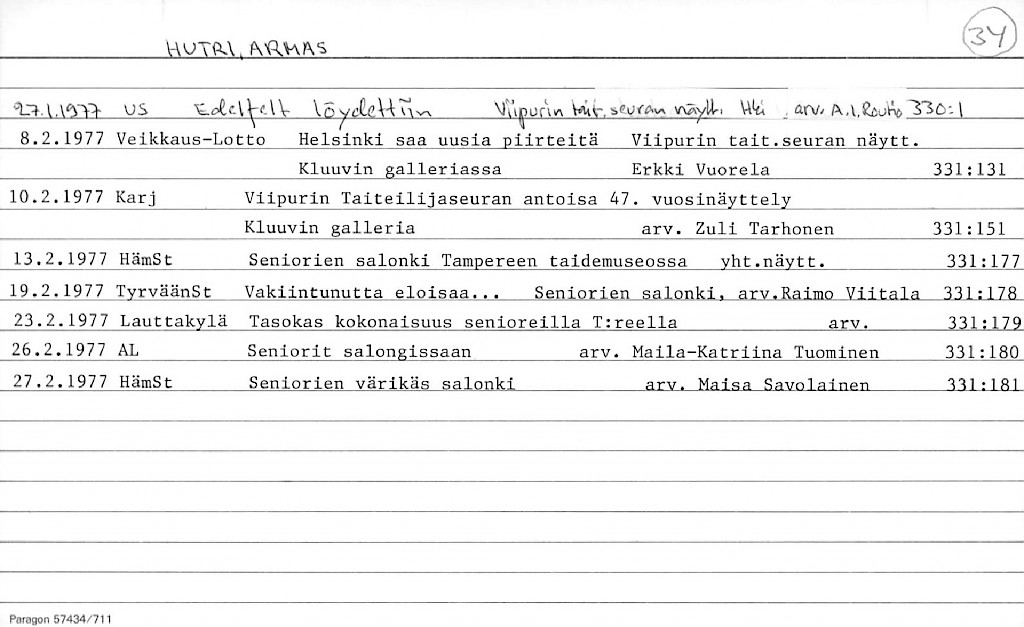 34
HUTRI, ARMAS
27.1.1977 US Edelfelt löydettiin Viipurin tait.seuran näytt. Hki , arv. A.I.Routio 330:1
8.2.1977 Veikkaus-Lotto Helsinki saa uusia piirteitä Viipurin tait.seuran näytt.
Kluuvin galleriassa Erkki Vuorela 331:131
10.2.1977 Karj Viipurin Taiteilijaseuran antoisa 47. vuosinäyttely
Kluuvin galleria arv. Zuli Tarhonen 331:151
13.2.1977 HämSt Seniorien salonki Tampereen taidemuseossa yht.näytt. 331:177
19.2.1977 TyrväänSt Vakiintunutta eloisaa... Seniorien salonki, arv.Raimo Viitala 331:178
23.2.1977 Lauttakylä Tasokas kokonaisuus senioreilla T:reella arv. 331:179
26.2.1977 AL Seniorit salongissaan arv. Maila-Katriina Tuominen 331:180
27.2.1977 HämSt Seniorien värikäs salonki arv. Maisa Savolainen 331:181
Paragon 57434/711